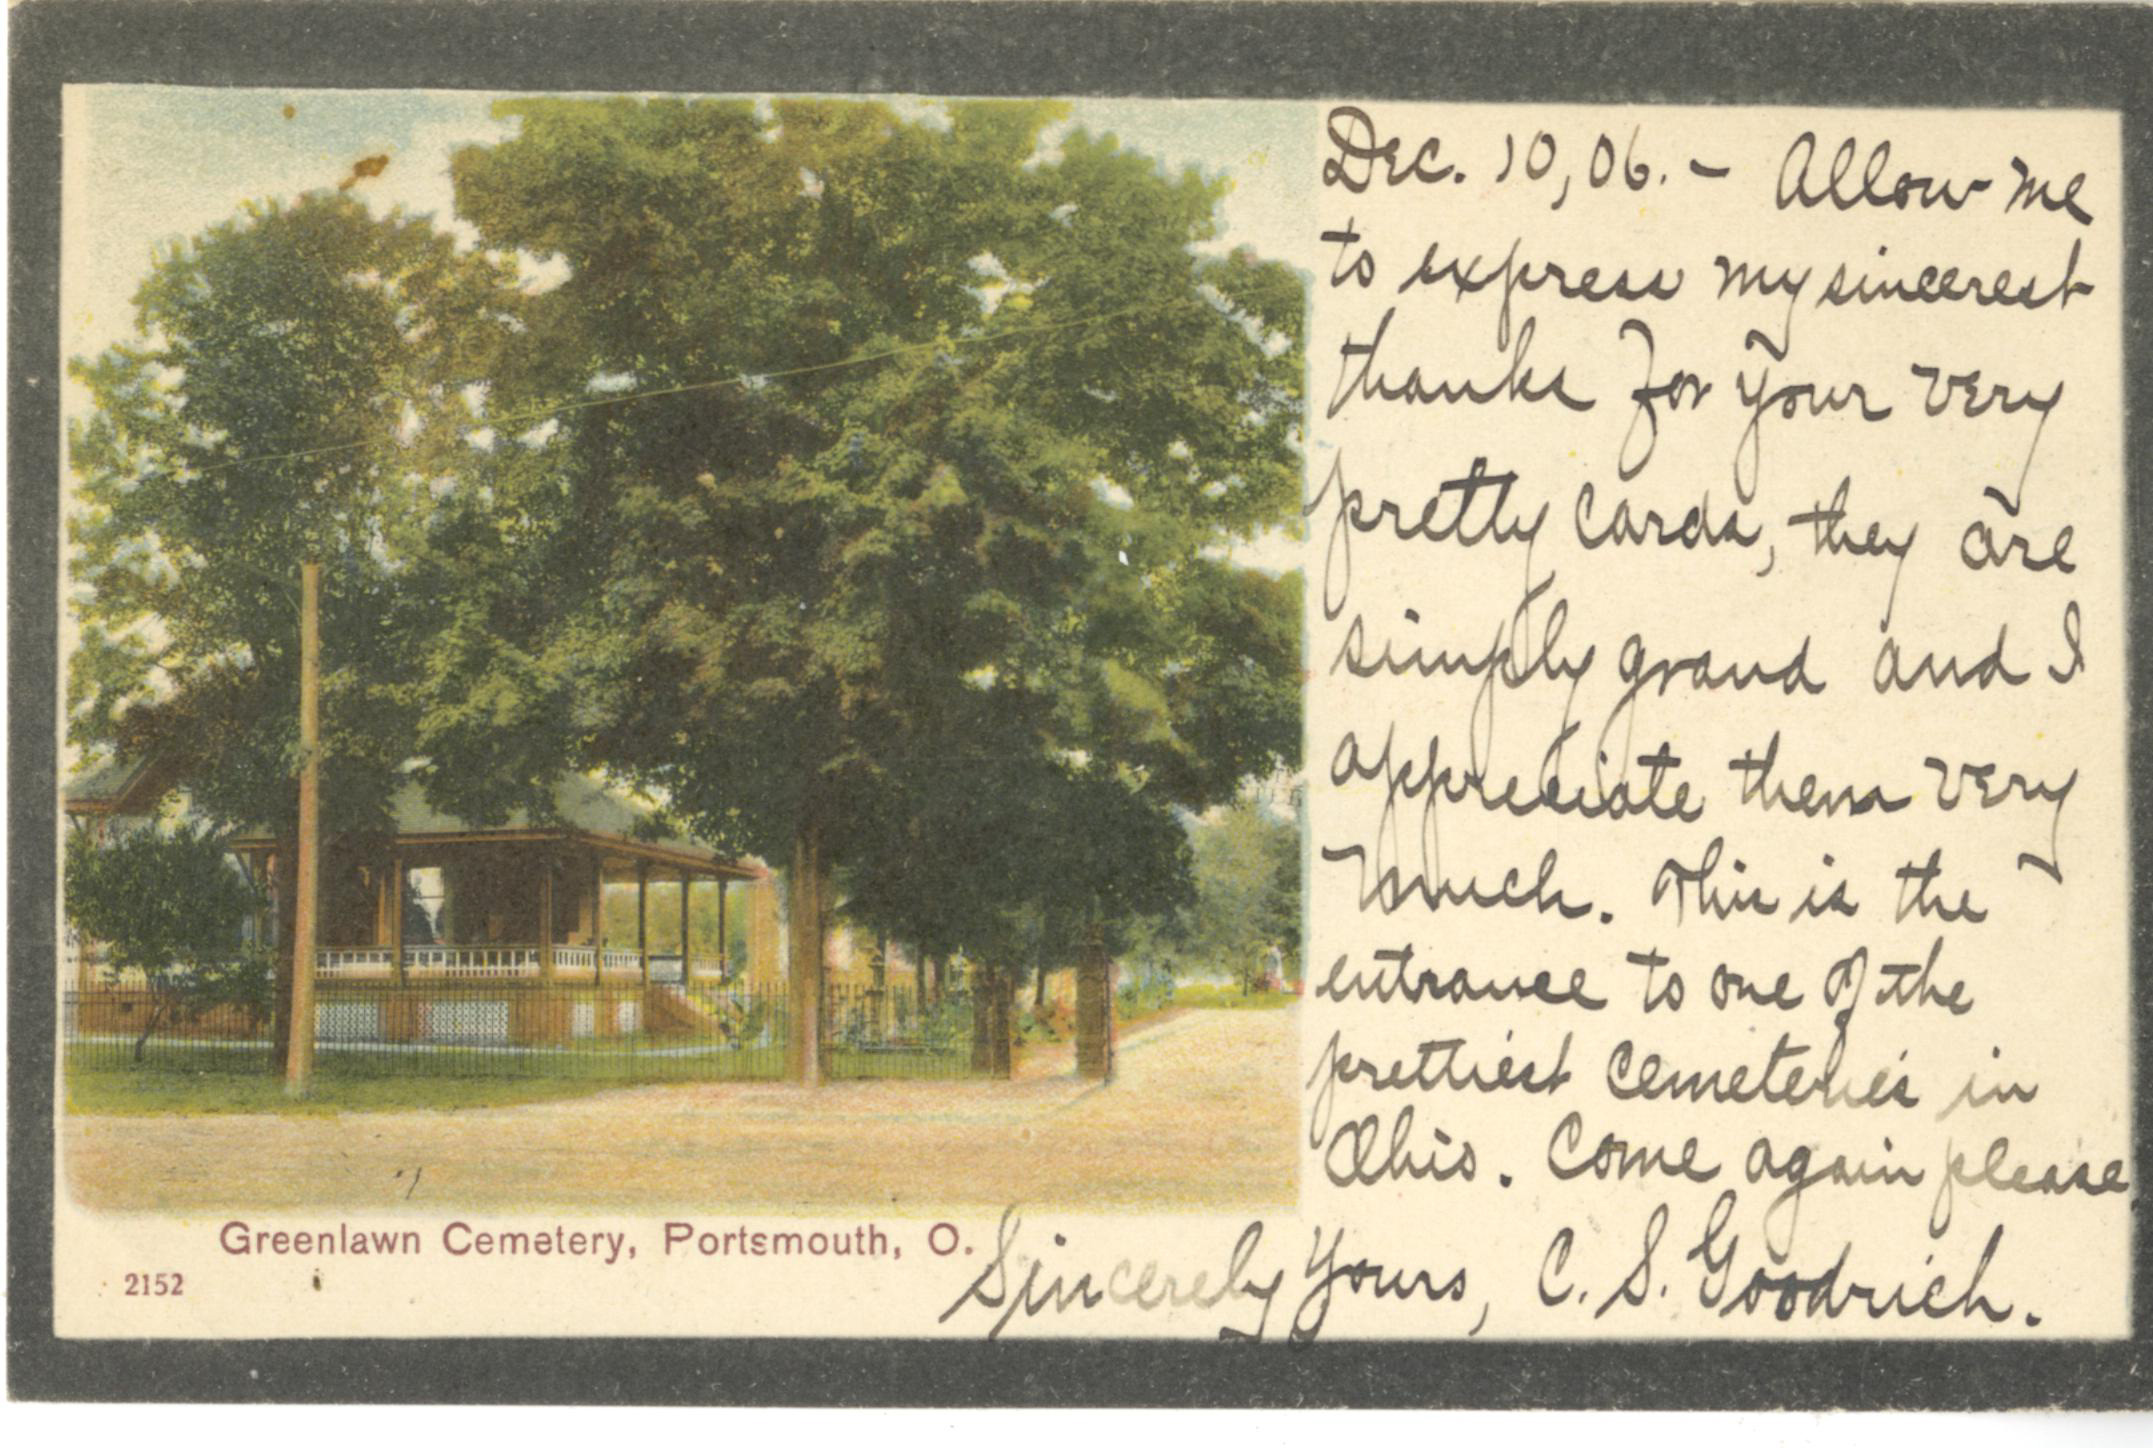 Dec. 10, 06. - Allow me
to express my sincerest
thanks for your very
pretty cards, they are
simply grand and I
appreciate them very
much. This is the
entrance to one of the
prettiest cemeteries in
Ohio. Come again please.
Sincerely Yours, C. S. Goodrich.
Greenlawn Cemetery, Portsmouth, O.
2152